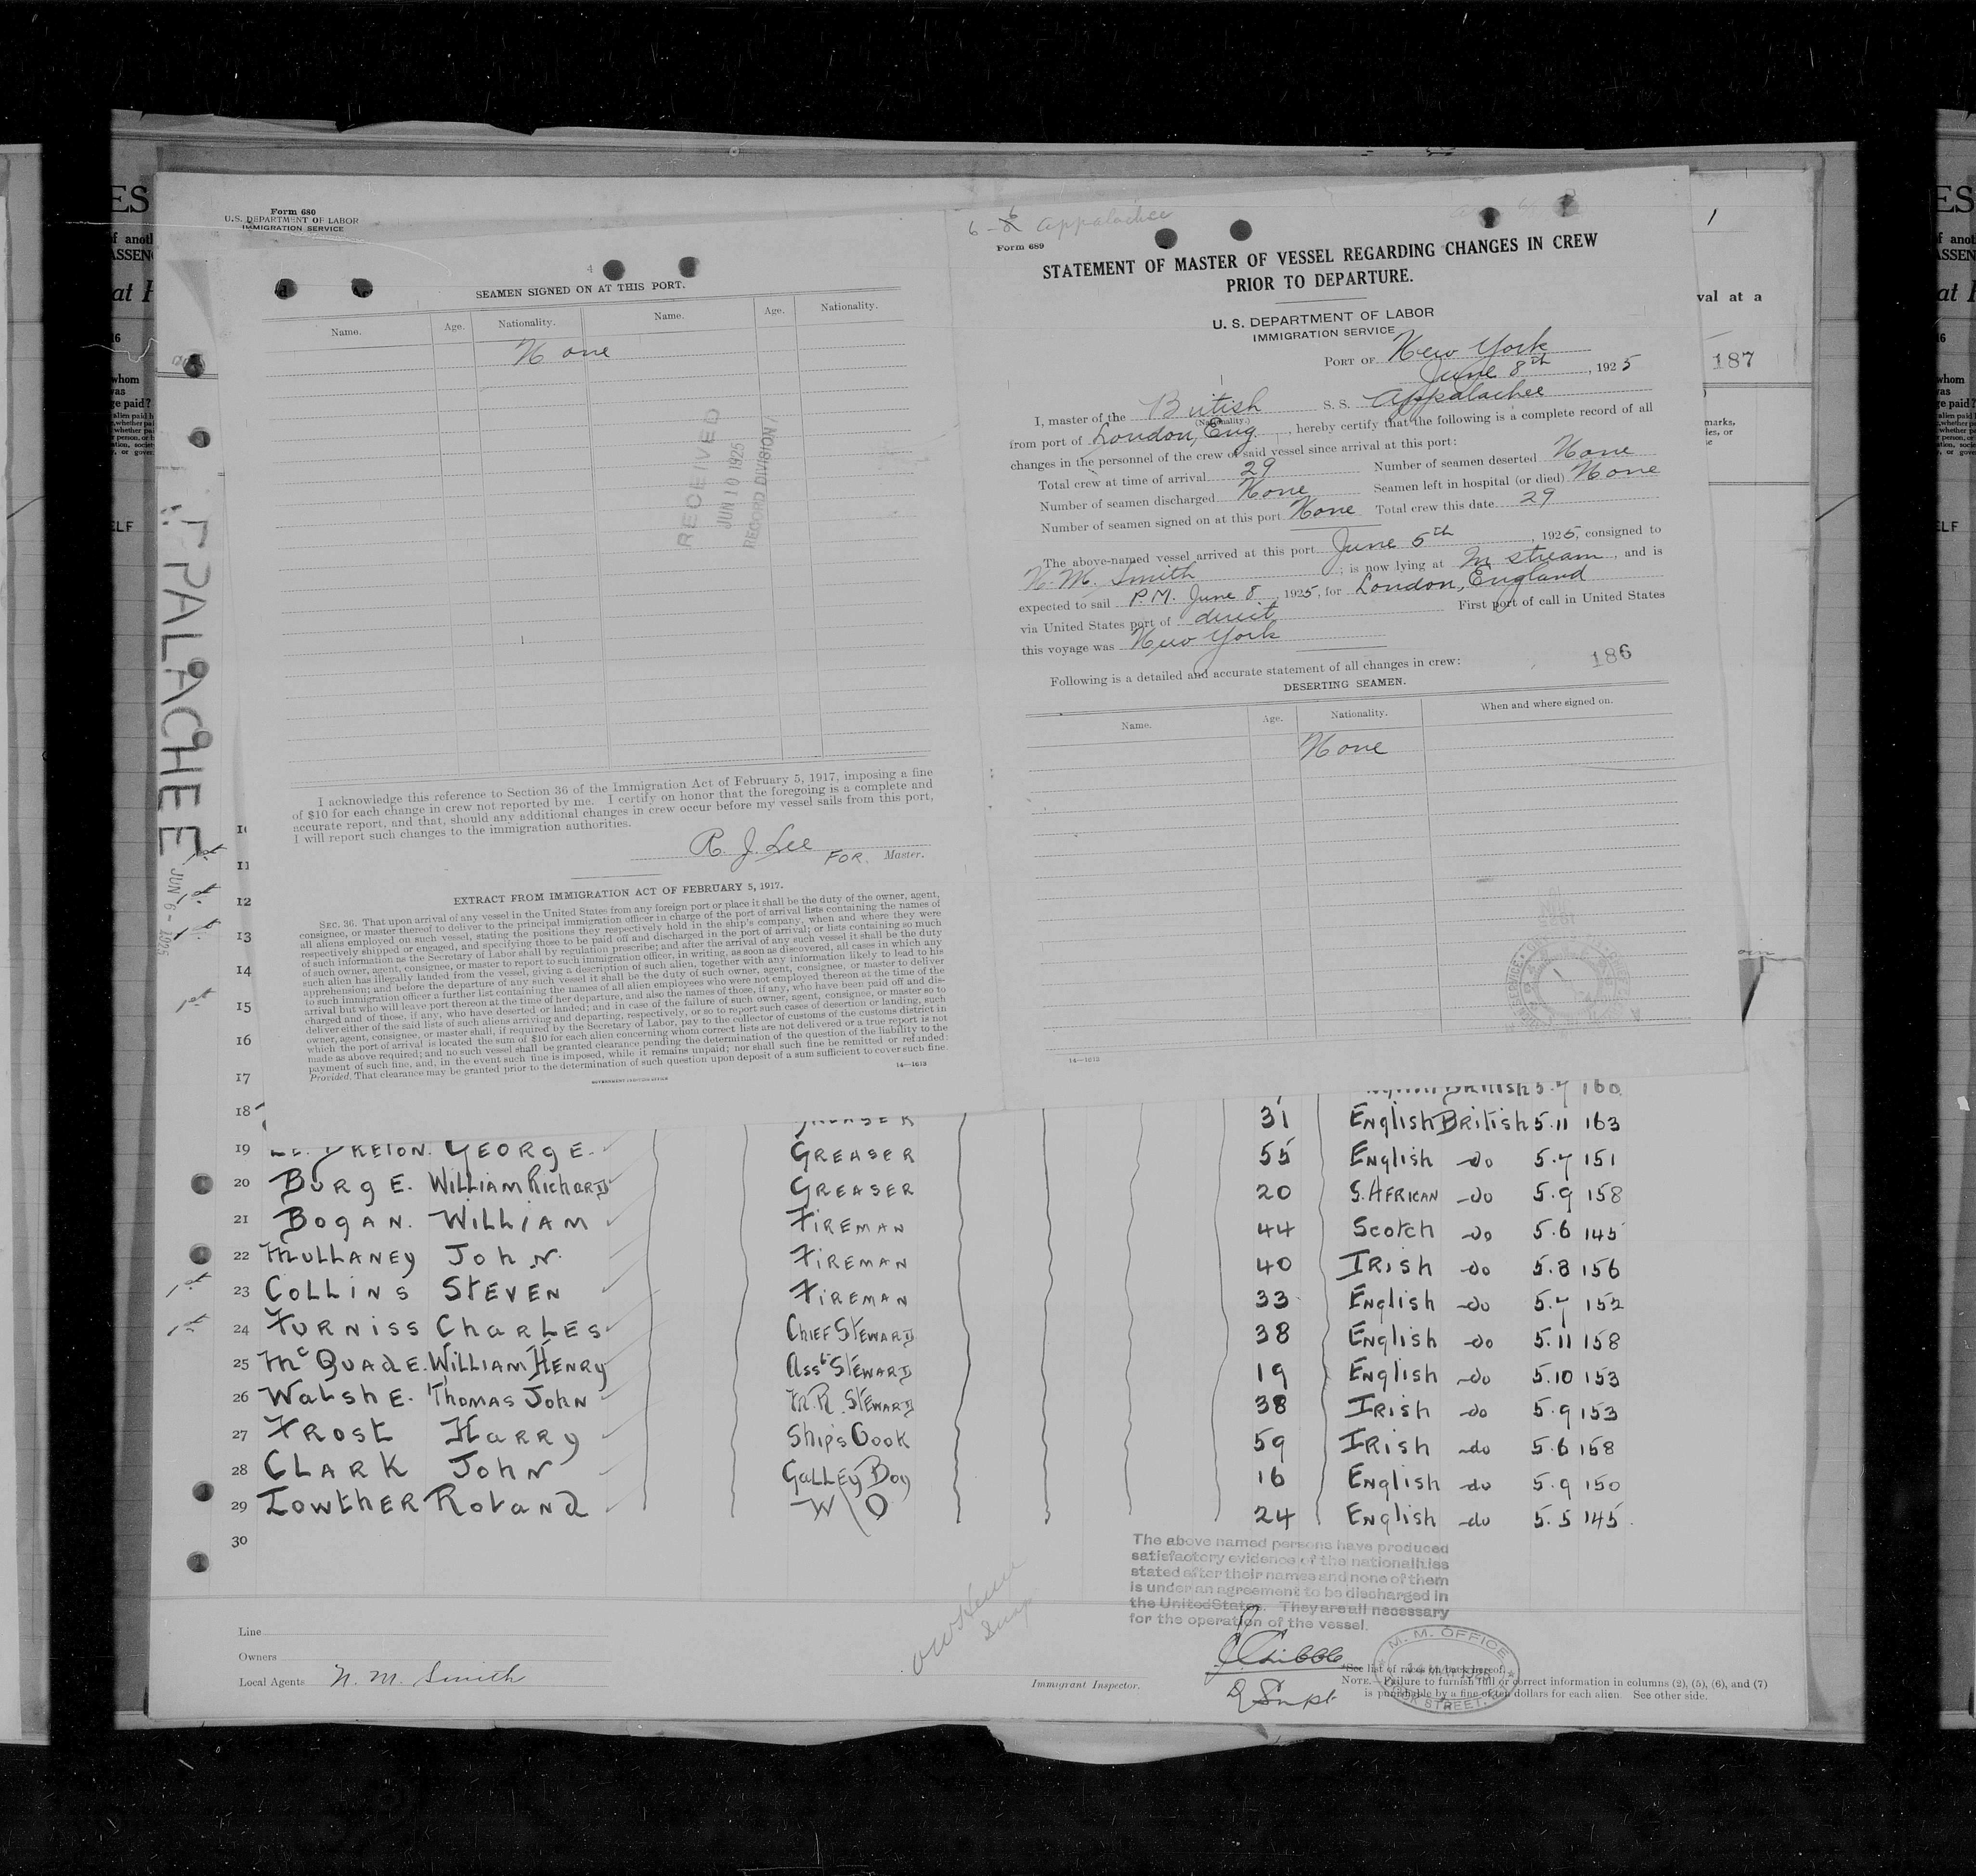 Form 680
U.S. DEPARTMENT OF LABOR
IMMIGRATION SERVICE
SEAMEN SIGNED ON AT THIS PORT.
Name. Age. Nationality. Name. Age. Nationality.
None
RECEIVED
JUN 10 1925
RECORD DIVISION
I acknowledge this reference to Section 36 of the Immigration Act of February 5, 1917, imposing a fine
of $10 for each change in crew not reported by me. I certify on honor that the foregoing is a complete and
accurate report, and that, should any additional changes in crew occur before my vessel sails from this port,
I will report such changes to the immigration authorities.
R. J. Lee FOR. Master.
EXTRACT FROM IMMIGRATION ACT OF FEBRUARY 5, 1917.
SEC. 36. That upon arrival of any vessel in the United States from any foreign port or place it shall be the duty of the owner, agent,
consignee, or master thereof to deliver to the principal immigration officer in charge of the port of arrival lists containing the names of
all aliens employed on such vessel, stating the positions they respectively hold in the ship's company, when and where they were
respectively shipped or engaged, and specifying those to be paid off and discharged in the port of arrival; or lists containing so much
of such information as the Secretary of Labor shall by regulation prescribe; and after the arrival of any such vessel it shall be the duty
of such owner, agent, consignee, or master to report to such immigration officer, in writing, as soon as discovered, all cases in which any
such alien has illegally landed from the vessel, giving a description of such alien, together with any information likely to lead to his
apprehension; and before the departure of any such vessel it shall be the duty of such owner, agent, consignee, or master to deliver
to such immigration officer a further list containing the names of all alien employees who were not employed thereon at the time of the
arrival but who will leave port thereon at the time of her departure, and also the names of those, if any, who have been paid off and dis-
charged and of those, if any, who have deserted or landed; and in case of the failure of such owner, agent, consignee, or master so to
deliver either of the said lists of such aliens arriving and departing, respectively, or so to report such cases of desertion or landing, such
owner, agent, consignee, or master shall, if required by the Secretary of Labor, pay to the collector of customs of the customs district in
which the port of arrival is located the sum of $10 for each alien concerning whom correct lists are not delivered or a true report is not
made as above required; and no such vessel shall be granted clearance pending the determination of the question of the liability to the
payment of such fine, and, in the event such fine is imposed, while it remains unpaid; nor shall such fine be remitted or refunded:
Provided, That clearance may be granted prior to the determination of such question upon deposit of a sum sufficient to cover such fine.
14—1613
6-6 Appalachee
Form 689
STATEMENT OF MASTER OF VESSEL REGARDING CHANGES IN CREW
PRIOR TO DEPARTURE.
U. S. DEPARTMENT OF LABOR
IMMIGRATION SERVICE
PORT OF New York
June 8th, 1925
I, master of the British S. S. Appalachee
(Nationality.)
from port of London, Eng, hereby certify that the following is a complete record of all
changes in the personnel of the crew of said vessel since arrival at this port:
Total crew at time of arrival 29 Number of seamen deserted None
Number of seamen discharged None Seamen left in hospital (or died) None
Number of seamen signed on at this port None Total crew this date 29
The above-named vessel arrived at this port June 6th, 1925, consigned to
N. M. Smith; is now lying at In stream, and is
expected to sail P.M. June 8, 1925, for London, England
via United States port of direct First port of call in United States
this voyage was New York
186
Following is a detailed and accurate statement of all changes in crew:
DESERTING SEAMEN.
Name. Age. Nationality. When and where signed on.
None
14—1613
1
val at a
187
PALACHEE
JUN 6 - 1925
11
12
13
14
15
16
17 British 5.7 160
18 31 English British 5.11 163
19 GEORGE. GREASER 55 English do 5.7 151
20 BURGE. WILLIAM RICHARD GREASER 20 S. AFRICAN do 5.9 158
21 BOGAN. WILLIAM FIREMAN 44 Scotch do 5.6 145
22 MULLANEY JOHN. FIREMAN 40 IRish do 5.8 156
23 COLLINS STEVEN FIREMAN 33 English do 5.7 152
24 FURNISS CHARLES CHIEF STEWARD 38 English do 5.11 158
25 McQUADE. WILLIAM HENRY Asst STEWARD 19 English do 5.10 153
26 WALSHE. THOMAS JOHN M.R. STEWARD 38 IRish do 5.9 153
27 FROST HARRY Ship's Cook 59 IRish do 5.6 158
28 CLARK JOHN GALLEY BOY 16 English do 5.9 150
29 LOWTHER ROLAND W/O 24 English do 5.5 145
30
The above named persons have produced
satisfactory evidence of the nationalities
stated after their names and none of them
is under an agreement to be discharged in
the United States. They are all necessary
for the operation of the vessel.
Line
Owners
Local Agents N. M. Smith
Immigrant Inspector.
D Supt.
M. M. OFFICE
*See list of races on back hereof.
NOTE.—Failure to furnish full or correct information in columns (2), (5), (6), and (7)
is punishable by a fine of ten dollars for each alien. See other side.